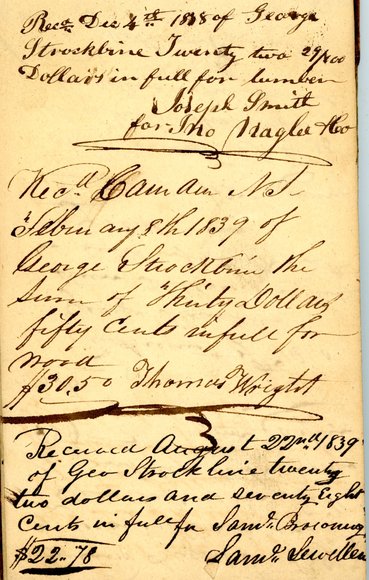 Recd Dec 4th 1838 of George
Strockbine Twenty two 29/100
Dollars in full for lumber
Joseph Smith
for Jno Naglee & Co
Recd Camden N J
February 8th 1839 of
George Strockbine the
sum of Thirty Dollars
fifty Cents in full for
wood
$30.50 Thomas Wright
Received August 22nd 1839
of Geo Strockbine twenty
two dollars and seventy Eight
Cents in full for Saml.
$22.78 Saml.